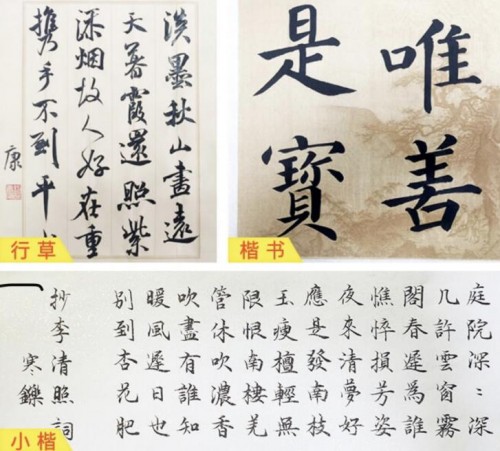 淡墨秋山畫遠
天暮霞還照紫
添烟故人好在重
攜手不到平
康
行草
唯善
是寶
楷书
庭院深〻深
几許雲窗霧
閣春遲為誰
憔悴損芳姿
夜來清夢好
應是發南枝
玉瘦檀輕無
限恨南樓羌
管休吹濃香
吹盡有誰知
暖風遲日也
別到杏花肥
抄李清照詞
寒鑠
小楷